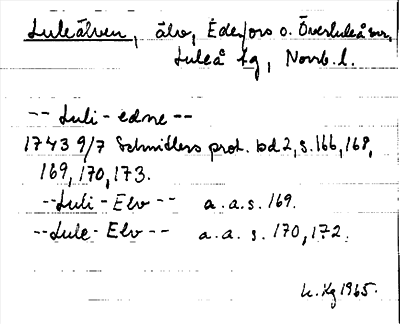 Luleälven, älv, Edefors o. Överluleå snr,
Luleå tg, Norrb. l.
-- Luli - edne --
1743 9/7 Schnitlers prot. bd 2, s. 166, 168,
169, 170, 173.
-- Luli - Elv -- a.a.s. 169.
-- Lule - Elv -- a.a. s. 170, 172.
Kg 1965.